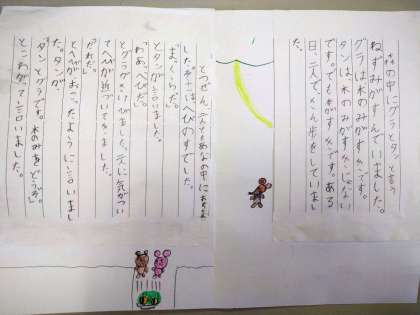 森の中にグラとタンと言う
ねずみがすんでいました。
グラは木のみがすきです。
タンは、木のみがすきじゃない
です。でも木がすきです。ある
日、二人で、さん歩をしていまし
た。
とつぜん、二人ともあなの中に
した。そこはへびのすでした。
「まっくらだ。」
とタンが言いました。
「わあ、へびだ。」
とグラがさけびました。元に気がつい
てへびが近づいてきました。
「だれだ。」
とへびがおこったように言いまし
た。タンが、
「タンとグラです。木のみをどうぞ。」
とこわがって言いました。